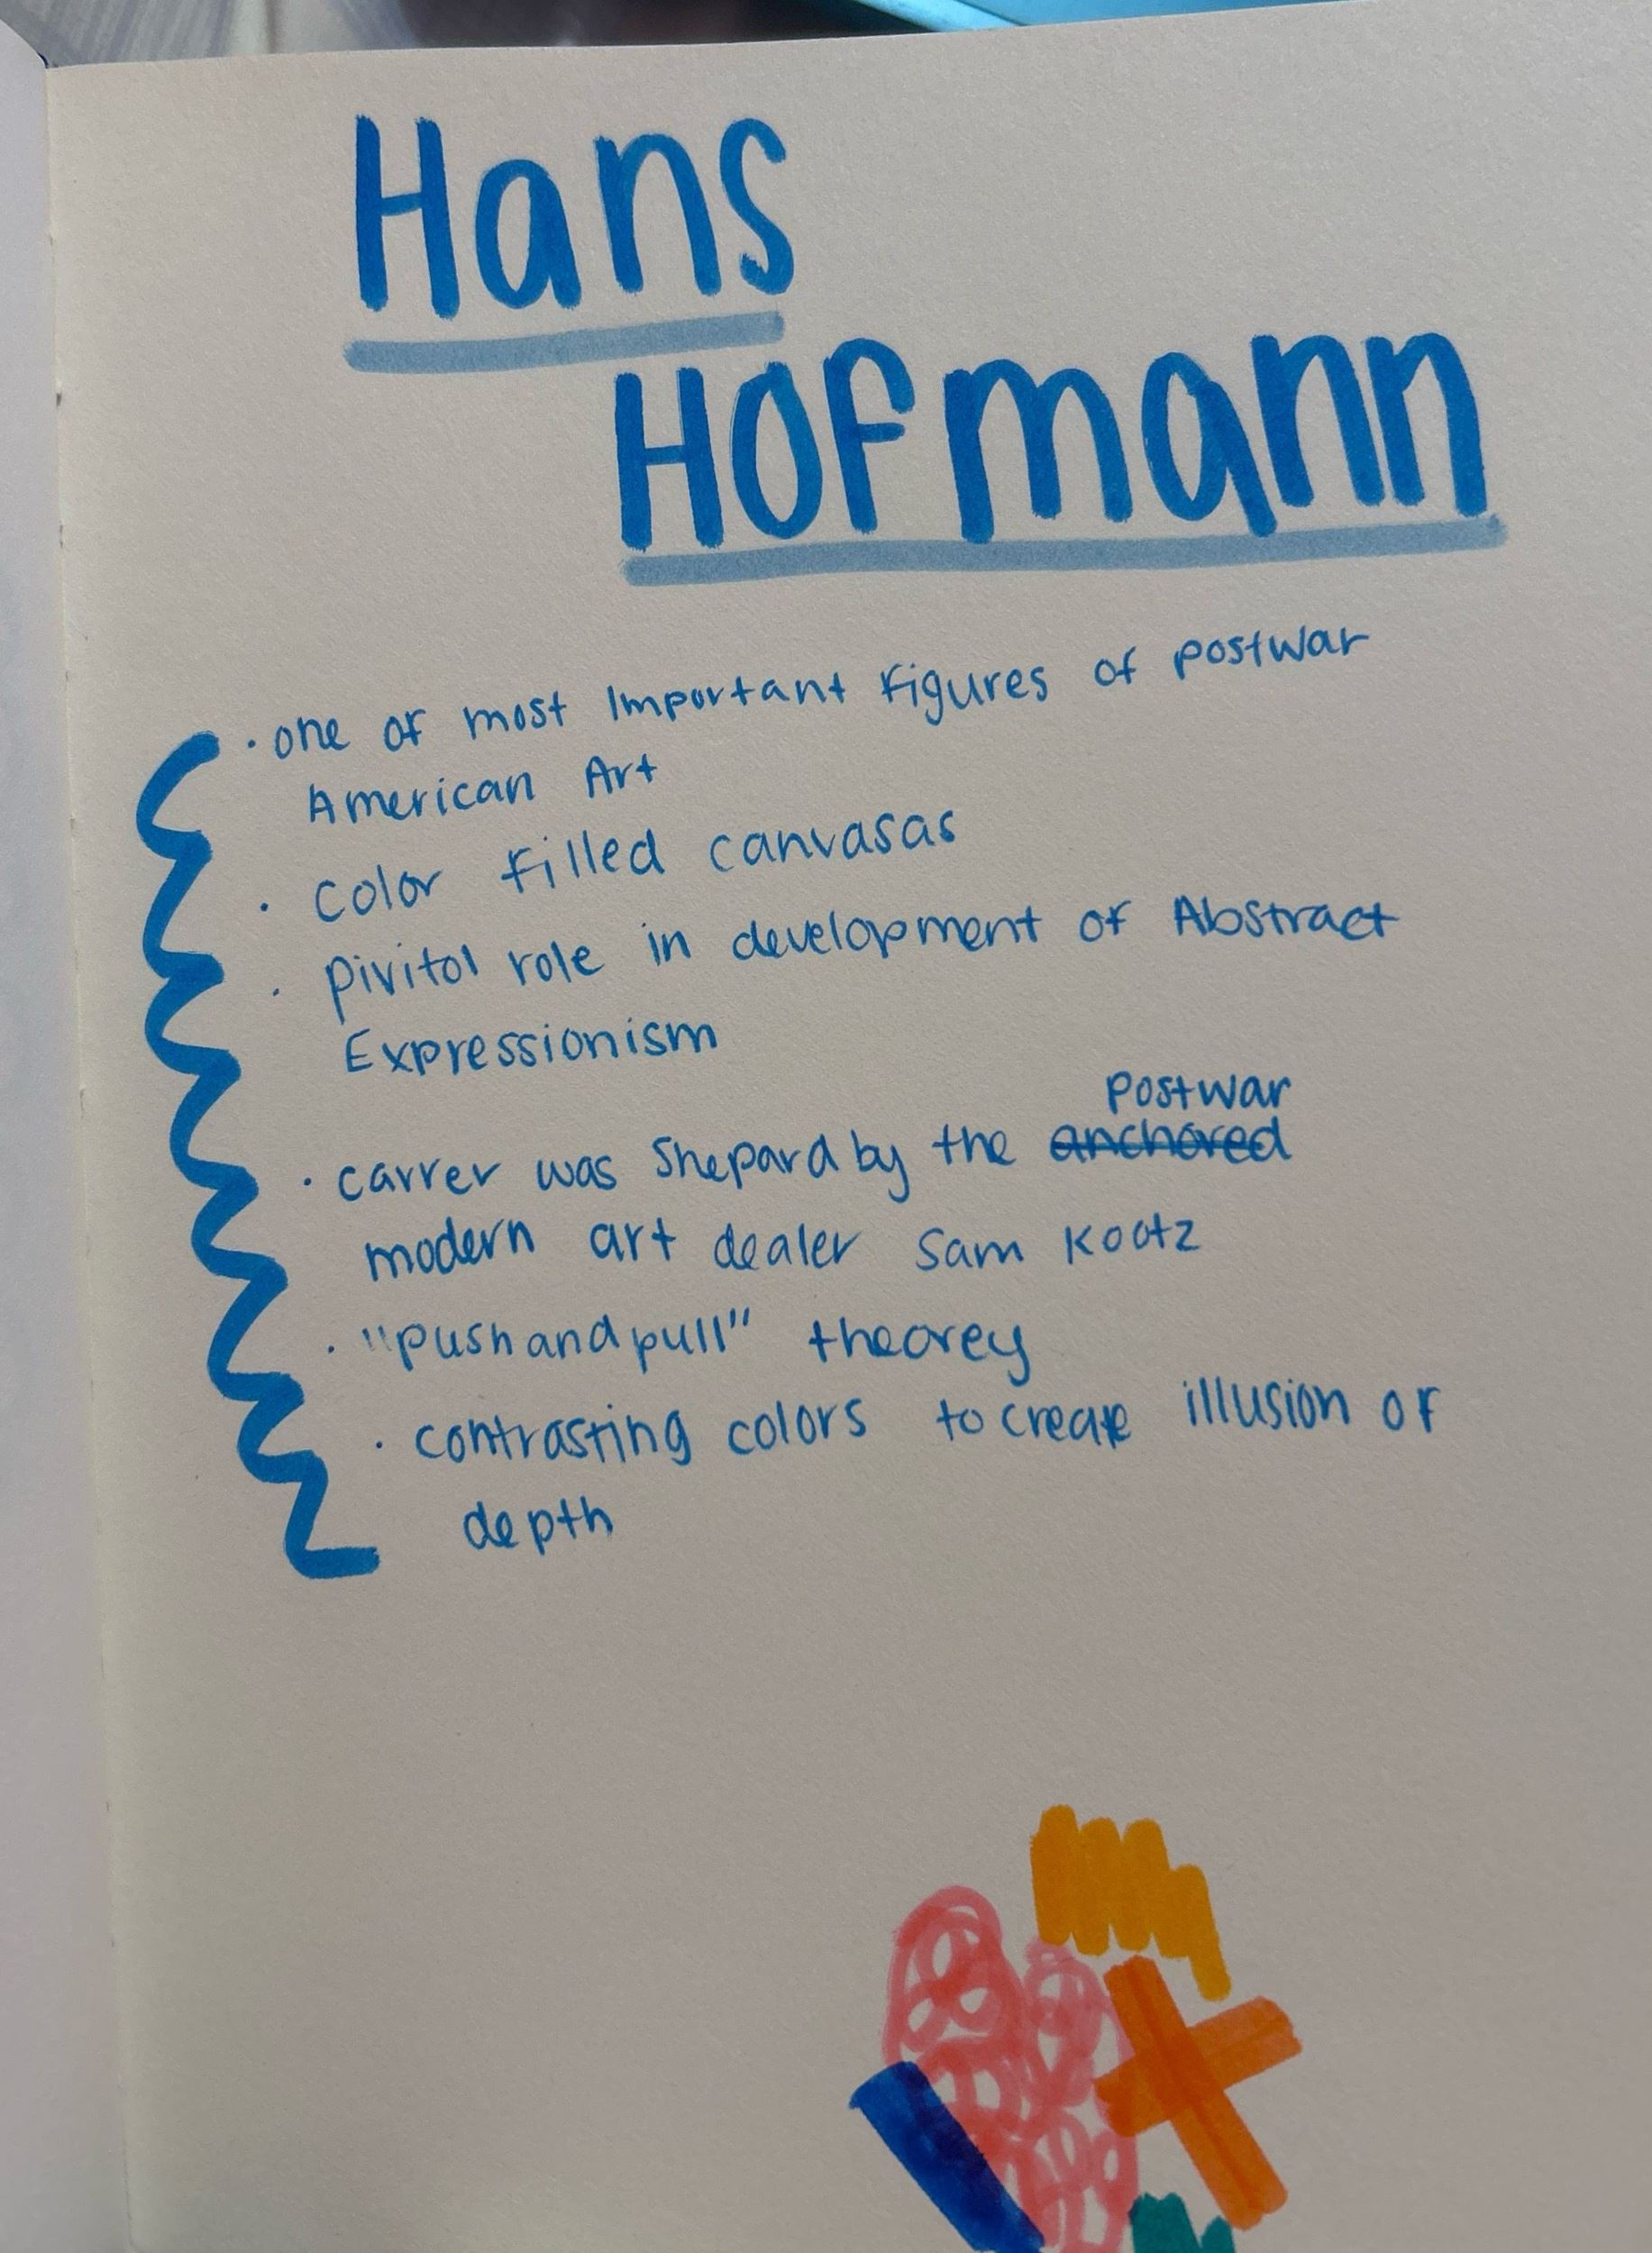 Hans
Hofmann
· one of most Important figures of postwar
American Art
· color filled canvasas
· pivitol role in development of Abstract
Expressionism
postwar
· carrer was Shepard by the anchored
modern art dealer Sam Kootz
· "push and pull" theorey
· contrasting colors to create illusion of
depth